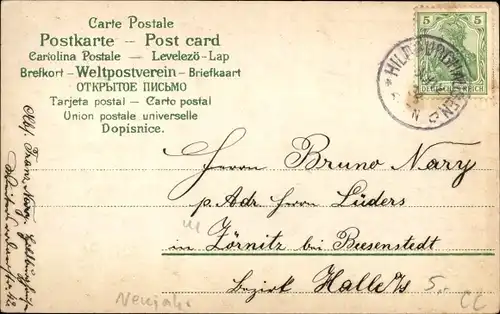 Carte Postale
Postkarte — Post card
Cartolina Postale — Levelező-Lap
Brefkort — Weltpostverein — Briefkaart
ОТКРЫТОЕ ПИСЬМО
Tarjeta postal — Carto postal
Union postale universelle
Dopisnice.
5 5
DEUTSCHES REICH
* HILDBURGHAUSEN
Herrn Bruno Nary
p. Adr. Herrn Lüders
in Zörnitz bei Beesenstedt
Bezirk Halle a/S
5.-
Neujahr
CC
Abs. Franz Nary.